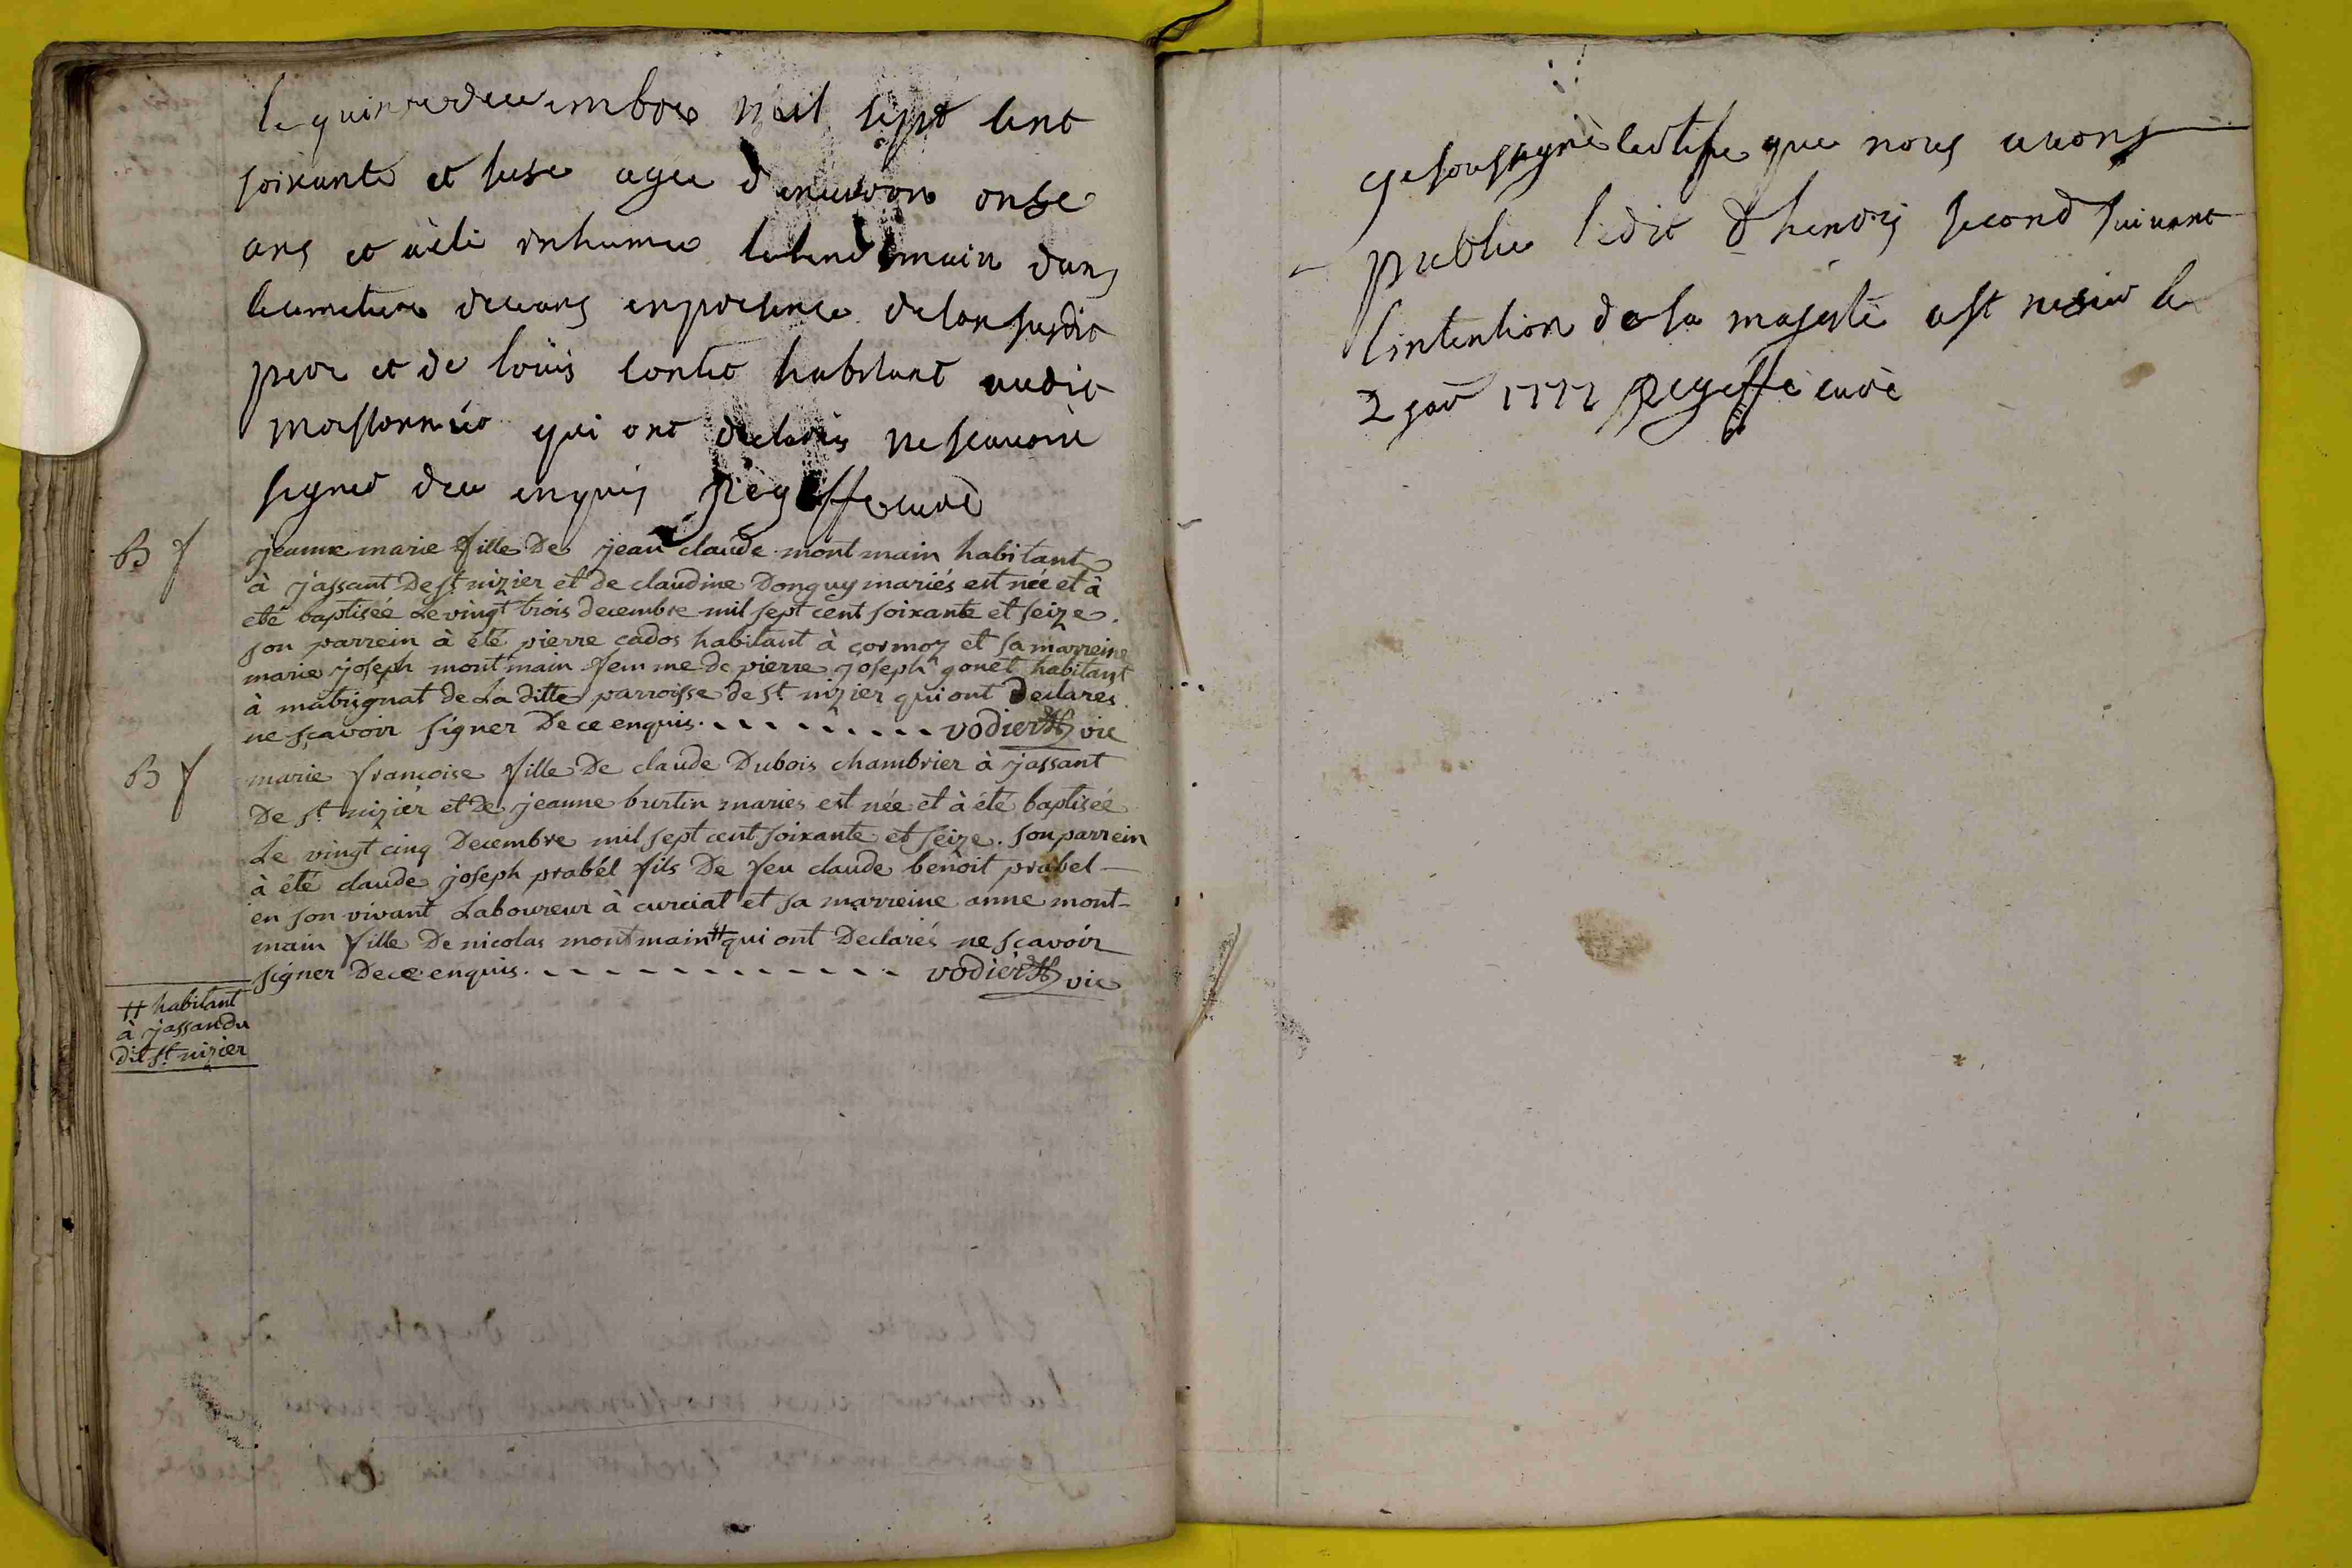 le quinze decembre mil sept cent
soixante et sese agee d'environ onse
ans et à eté inhumee lelendemain dans
le cimetiere de ceans enpresence de son susdit
pere et de loüis contet habitant audit
moissonnier qui ont declarés ne scavoir
signer de ce enquis pegeffe curè
B f
jeanne marie fille De jean claude montmain habitant
à jassant De st nizier et de claudine Donguy mariés est née et à
eté baptisée Le vingt trois decembre mil sept cent soixante et seize.
son parrein à été pierre cados habitant à cormoz et sa marreine
marie joseph montmain femme de pierre joseph gonet habitant
à matrignat de La ditte parroisse de st. nizier qui ont Declarés
ne sçavoir signer De ce enquis. - - - - - - - - vodier vic
B f
marie francoise fille De claude Dubois chambrier à jassant
De st. nizier et De jeanne burtin mariés est née et à été baptisée
Le vingt cinq Decembre mil sept cent soixante et seize. son parrein
à été claude joseph prabel fils De feu claude benoit prabel
en son vivant Laboureur à curciat et sa marreine anne mont-
main fille De nicolas montmain # qui ont Declarés ne sçavoir
signer De ce enquis. - - - - - - - - - - - - vodier vic
# habitant
à jassandu
dit st. nizier
je soussigné certifie que nous avons
publié ledit d'henry second suivant
l'intention de sa majesté a st nizier le
2 janv 1777 pegeffe curè